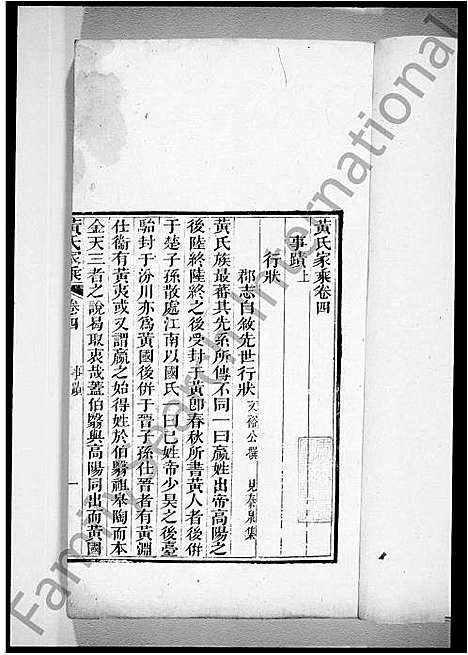 黃氏家乘卷四
事蹟上
行狀
郡志自敘先世行狀 文裕公撰 見泰泉集
黃氏族最蕃其先系所傳不同一曰嬴姓出帝高陽之
後陸終陸終之後受封于黃卽春秋所書黃人者後併
于楚子孫散處江南以國氏一曰己姓帝少昊之後臺
駘封于汾川亦爲黃國後併于晉子孫仕晉者有黃淵
仕衞有黃夷或又謂嬴之始得姓於伯翳祖皋陶而本
金天三者之說易取衷哉蓋伯翳與高陽同出而黃國
黃氏家乘 卷四 事蹟 一
FamilySearch International